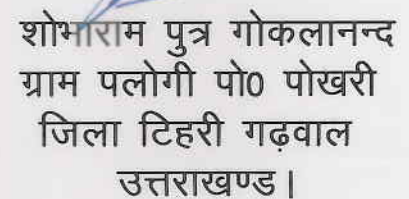 शोभाराम पुत्र गोकलानन्द
ग्राम पलोगी पो0 पोखरी
जिला टिहरी गढ़वाल
उत्तराखण्ड।